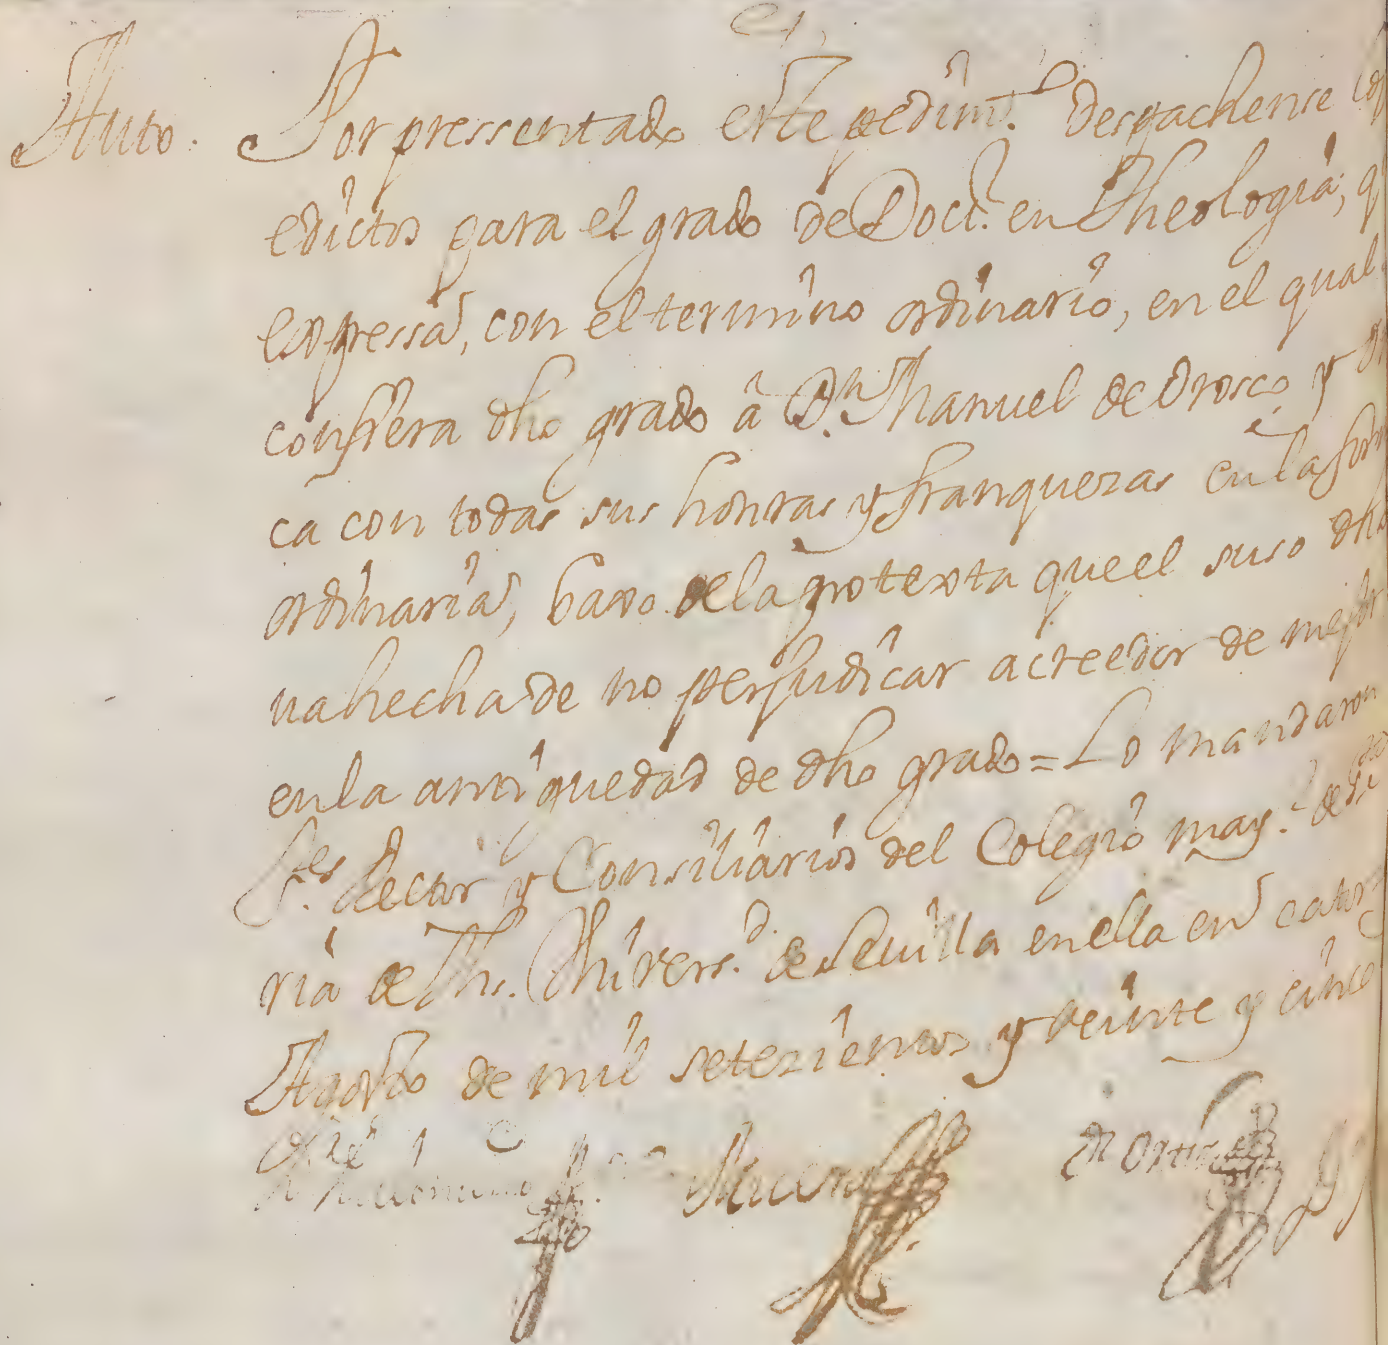 Auto. Por pressentado este pedim.to despachense
edictos para el grado de Doct.r en Theologia, q
expressa, con el termino ordinario, en el qual
confiera dho grado â D.n Manuel de Orosco y
ca con todas sus honras y franquezas en la form
ordinaria, baxo de la protexta que el suso dho
va hecha de no perjudicar acreedor de mejor
en la antiguedad de dho grado = Lo mandaron
S.res Rector y Consiliarios del Colegio may.r de
ria de Jhs. Vnivers.d de Sevilla en ella en cator
Agosto de mil setezientos y veinte y cinco
D.r Orti